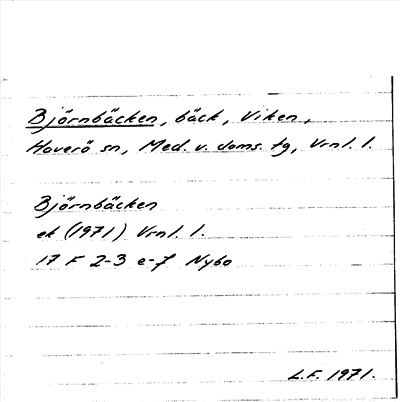 Björnbäcken, bäck, Viken,
Haverö sn, Med. v. doms. tg, Vrnl. l.
Björnbäcken
ek (1971) Vrnl. l.
17 F 2-3 e-f Nybo
L.F. 1971.